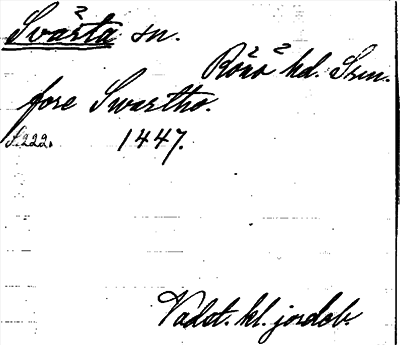 Svärta sn.
Rönö hd. Srm.
fore Swartho.
f.222. 1447.
Vadst. kl. jordeb.